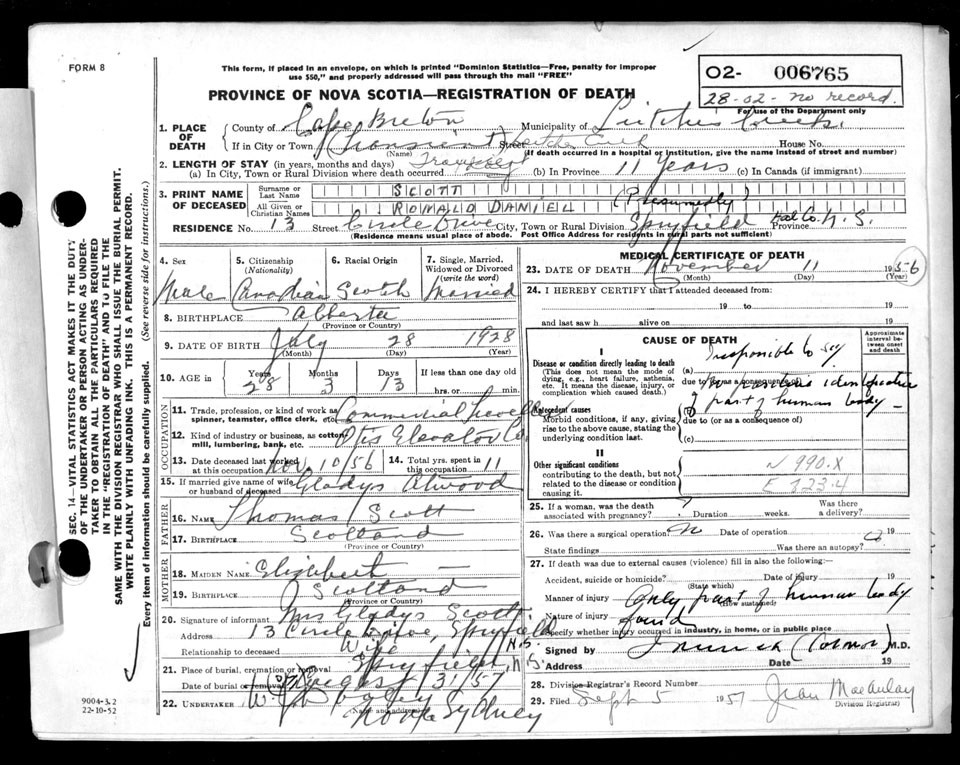 FORM 8
This form, if placed in an envelope, on which is printed "Dominion Statistics—Free, penalty for improper
use $50," and properly addressed will pass through the mail "FREE"
02- 006765
28-02- no record.
For use of the Department only
PROVINCE OF NOVA SCOTIA—REGISTRATION OF DEATH
1. PLACE OF DEATH
County of Cape Breton Municipality of Leitches Creek.
If in City or Town (Transient) Street House No.
(Name) (If death occurred in a hospital or institution, give the name instead of street and number)
2. LENGTH OF STAY (in years, months and days)
(a) In City, Town or Rural Division where death occurred (b) In Province 11 Years (c) In Canada (if immigrant)
3. PRINT NAME OF DECEASED
Surname or Last Name SCOTT
All Given or Christian Names ROMALD DANIEL (Presumedly)
RESIDENCE No. 13 Street Circle Drive City, Town or Rural Division Spryfield Hal Co. Province N.S.
(Residence means usual place of abode. Post Office Address for residents in rural parts not sufficient)
4. Sex
Male
5. Citizenship
(Nationality)
Canadian
6. Racial Origin
Scotch
7. Single, Married, Widowed or Divorced
(write the word)
Married
8. BIRTHPLACE Alberta
(Province or Country)
9. DATE OF BIRTH July 28 1928
(Month) (Day) (Year)
10. AGE in Years Months Days If less than one day old
28 3 13 hrs. or min.
OCCUPATION
11. Trade, profession, or kind of work as spinner, teamster, office clerk, etc. Commercial Traveller
12. Kind of industry or business, as cotton mill, lumbering, bank, etc. Otis Elevator Co.
13. Date deceased last worked at this occupation Nov. 10/56
14. Total yrs. spent in this occupation 11
15. If married give name of wife or husband of deceased Gladys Atwood
FATHER
16. NAME Thomas Scott
17. BIRTHPLACE Scotland
(Province or Country)
MOTHER
18. MAIDEN NAME Elizabeth —
19. BIRTHPLACE Scotland
(Province or Country)
20. Signature of informant Mrs Gladys Scott
Address 13 Circle Drive, Spryfield N.S.
Relationship to deceased Wife
21. Place of burial, cremation or removal Spryfield, N.S.
Date of burial or removal August 31/57
22. UNDERTAKER
(Name and address)
North Sydney
MEDICAL CERTIFICATE OF DEATH
23. DATE OF DEATH November 11 1956
(Month) (Day) (Year)
24. I HEREBY CERTIFY that I attended deceased from:
19 to 19
and last saw h alive on 19
CAUSE OF DEATH
Approximate interval between onset and death
I
Disease or condition directly leading to death
(This does not mean the mode of dying, e.g., heart failure, asthenia, etc. It means the disease, injury, or complication which caused death.)
(a) Impossible to say
due to (or as a consequence of)
No positive identification
(b) of part of human body —
Antecedent causes
Morbid conditions, if any, giving rise to the above cause, stating the underlying condition last.
due to (or as a consequence of)
(c)
II
Other significant conditions
contributing to the death, but not related to the disease or condition causing it.
N 990.X
E 123.4
25. If a woman, was the death associated with pregnancy? Duration weeks. Was there a delivery?
26. Was there a surgical operation? No Date of operation 19
State findings Was there an autopsy?
27. If death was due to external causes (violence) fill in also the following:—
Accident, suicide or homicide? Date of injury 19
(State which)
Manner of injury Only part of human body
(How sustained)
Nature of injury found
Specify whether injury occurred in industry, in home, or in public place
Signed by (Coroner) M.D.
Address Date 19
28. Division Registrar's Record Number
29. Filed Sept 5 1957 Jean MacAulay
Division Registrar)
SEC. 14—VITAL STATISTICS ACT MAKES IT THE DUTY
OF THE UNDERTAKER OR PERSON ACTING AS UNDER-
TAKER TO OBTAIN ALL THE PARTICULARS REQUIRED
IN THE "REGISTRATION OF DEATH" AND TO FILE THE
SAME WITH THE DIVISION REGISTRAR WHO SHALL ISSUE THE BURIAL PERMIT.
WRITE PLAINLY WITH UNFADING INK. THIS IS A PERMANENT RECORD.
Every item of information should be carefully supplied. (See reverse side for instructions.)
9004-3.2
22-10-52